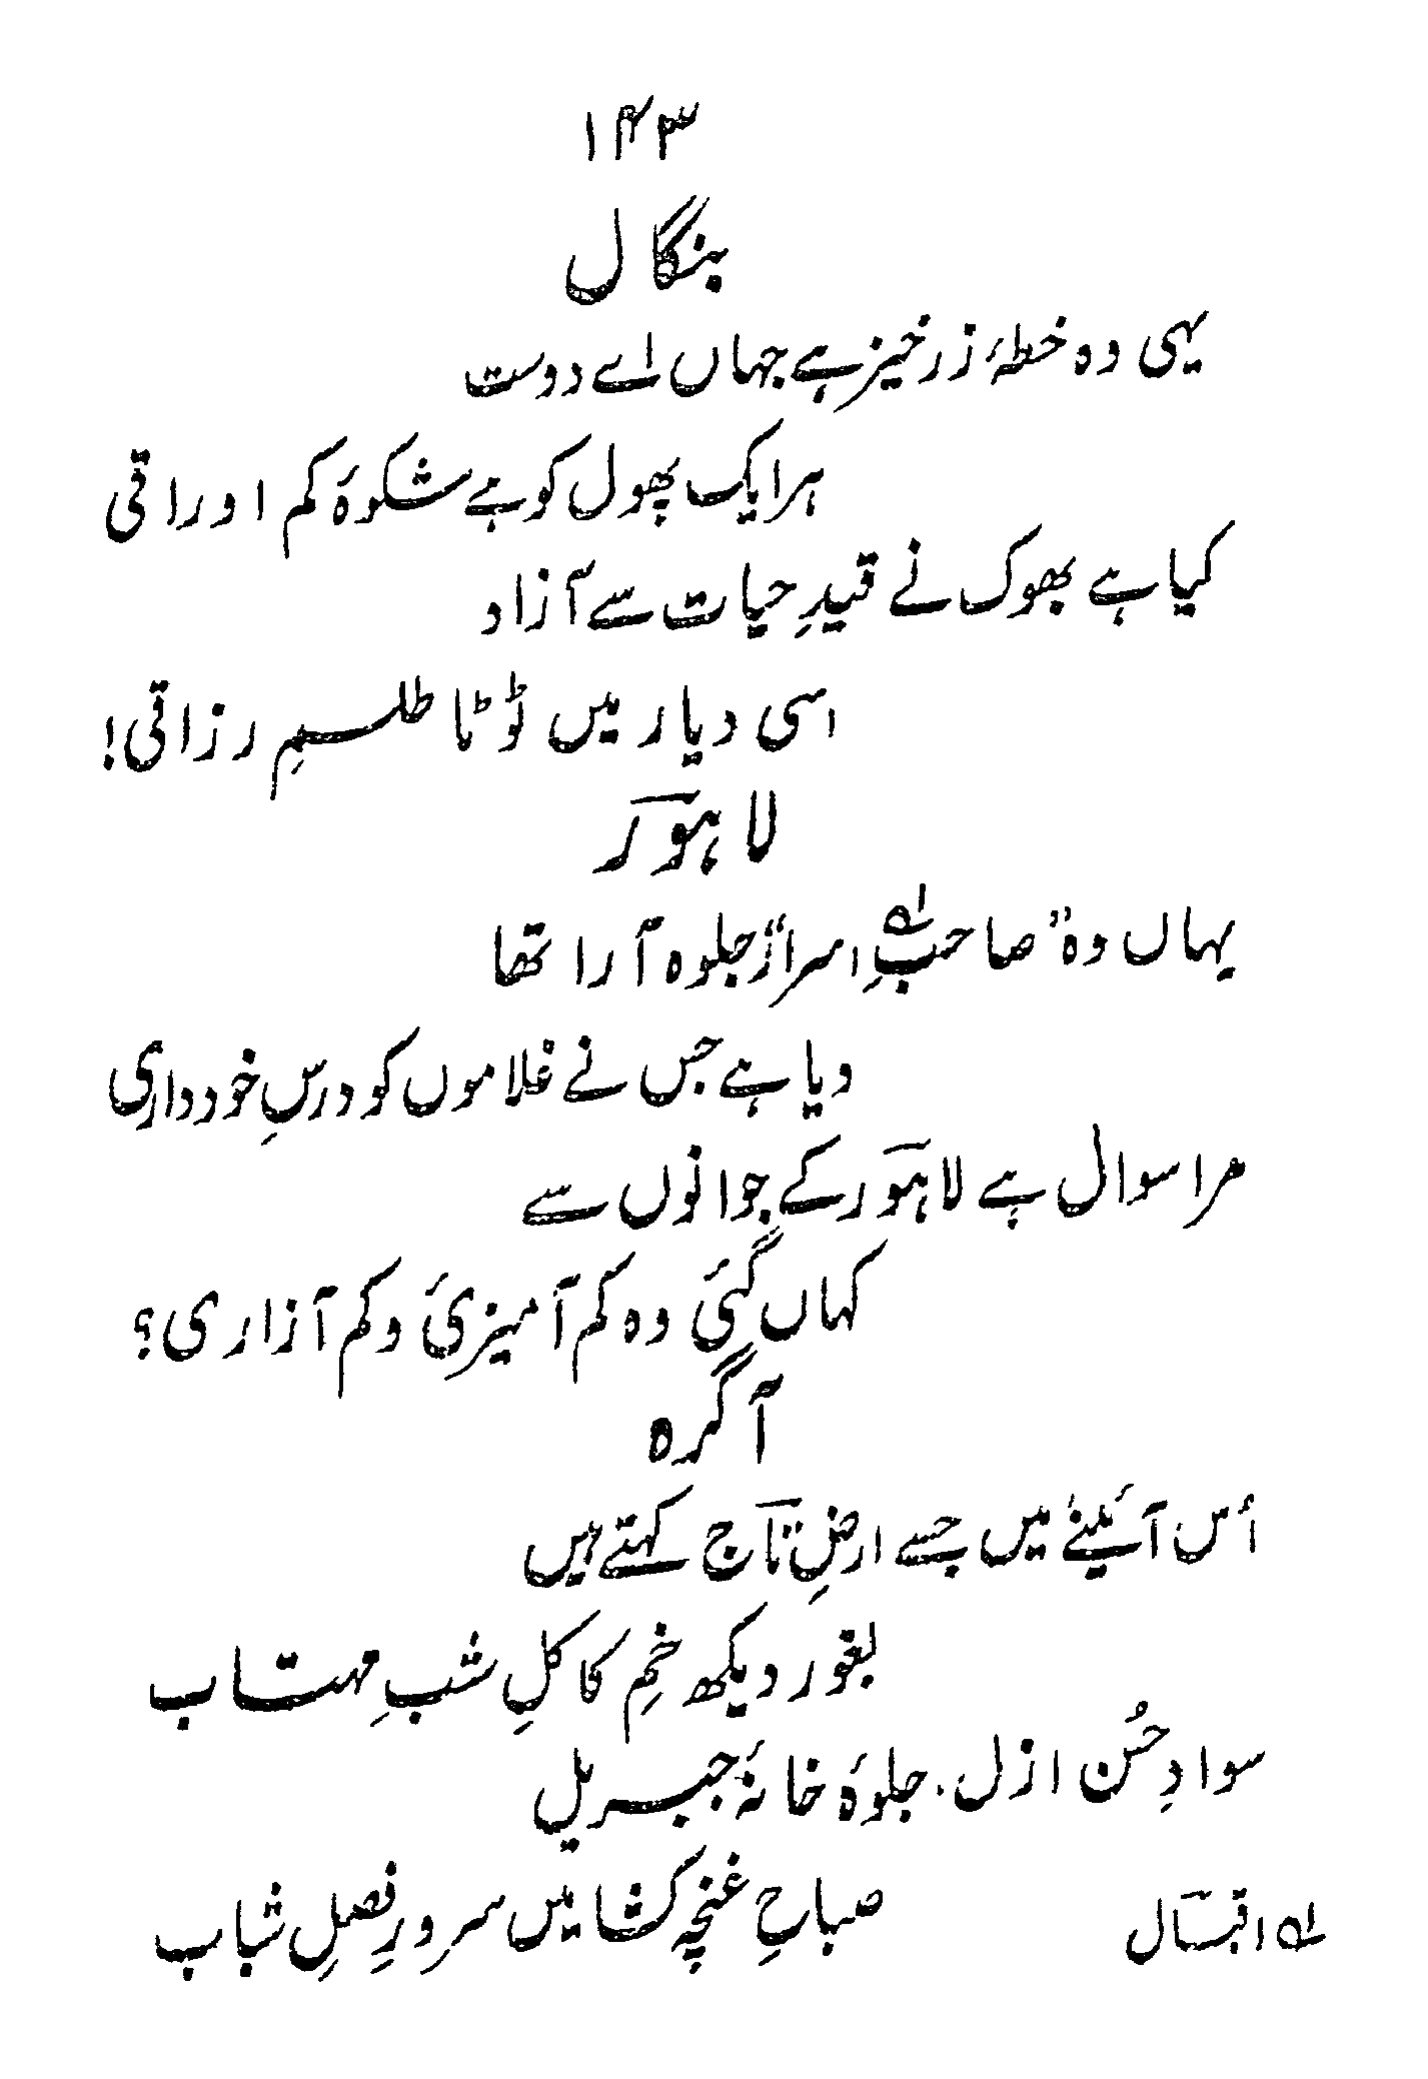 ۱۴۳
بنگال
یہی وہ خطۂ زرخیز ہے جہاں اے دوست
ہر ایک پھول کو ہے شکوۂ کم اوراقی
کیا ہے بھوک نے قیدِ حیات سے آزاد
اسی دیار میں ٹوٹا طلسمِ رزاقی!
لاہور
یہاں وہ "صاحبِ اسرار" جلوہ آرا تھا
دیا ہے جس نے غلاموں کو درسِ خودداری
مرا سوال ہے لاہور کے جوانوں سے
کہاں گئی وہ کم آمیزیٔ و کم آزاری؟
آگرہ
اُس آئینے میں جسے ارضِ تاج کہتے ہیں
بغور دیکھ خمِ کاکلِ شبِ مہتاب
سوادِ حُسن ازل، جلوۂ خانۂ جبریل
صباحِ غنچہ کشا میں سرورِ فصلِ شباب
لہ اقبال